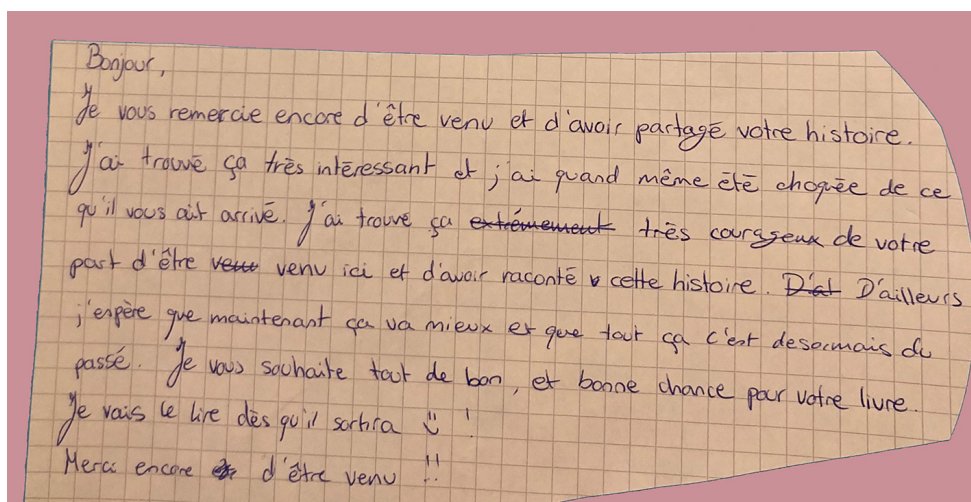 Bonjour,
Je vous remercie encore d'être venu et d'avoir partagé votre histoire.
J'ai trouvé ça très intéressant et j'ai quand même été choquée de ce
qu'il vous ait arrivé. J'ai trouvé ça extrémement très courageux de votre
part d'être venu ici et d'avoir raconté cette histoire. D'ailleurs
j'espère que maintenant ça va mieux et que tout ça c'est desormais du
passé. Je vous souhaite tout de bon, et bonne chance pour votre livre.
Je vais le lire dès qu'il sortira !
Merci encore d'être venu !!